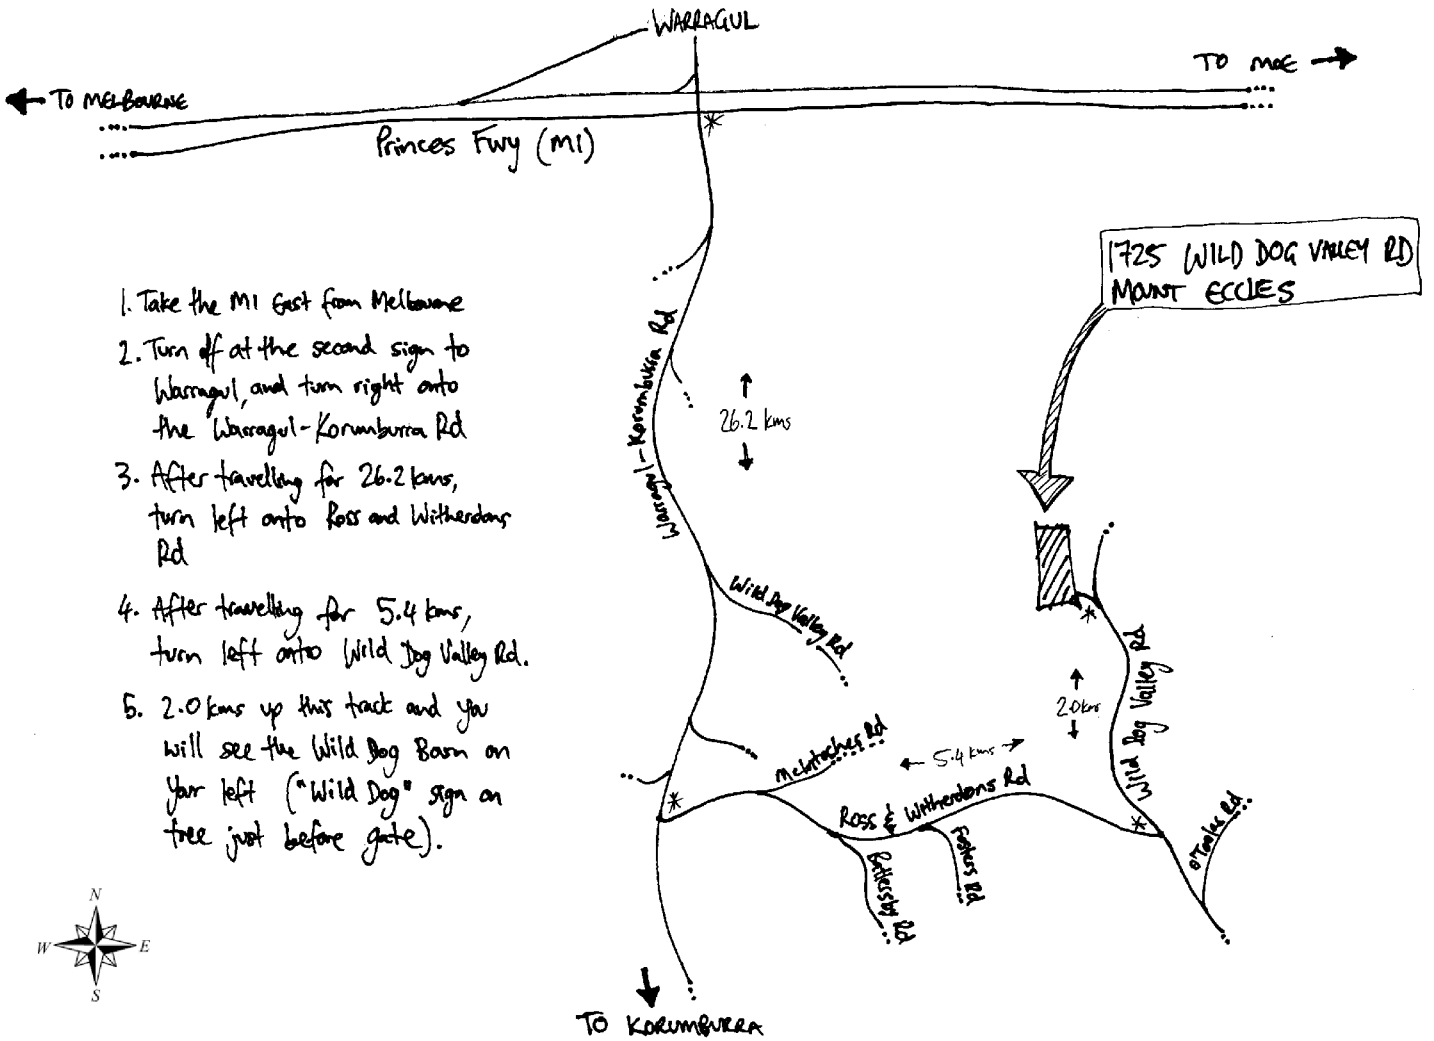 WARRAGUL
TO MOE
TO MELBOURNE
Princes Fwy (M1)
1725 WILD DOG VALLEY RD
MOUNT ECCLES
1. Take the M1 East from Melbourne
2. Turn off at the second sign to
Warragul, and turn right onto
the Warragul-Korumburra Rd
3. After travelling for 26.2 kms,
turn left onto Ross and Witherdons
Rd
4. After travelling for 5.4 kms,
turn left onto Wild Dog Valley Rd.
5. 2.0 kms up this track and you
will see the Wild Dog Barn on
your left ("Wild Dog" sign on
tree just before gate).
Warragul-Korumburra Rd
26.2 kms
Wild Dog Valley Rd
Wild Dog Valley Rd
2.0 kms
McIntoshes Rd
5.4 kms
Ross & Witherdons Rd
Battersby Rd
Fosters Rd
O'Tooles Rd
N
W E
S
TO KORUMBURRA